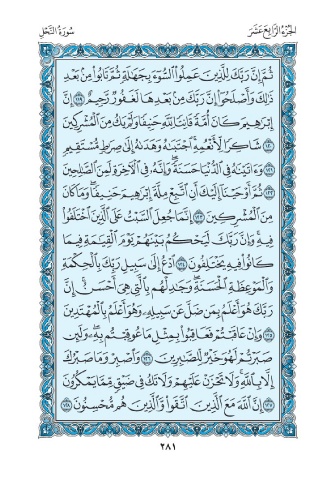 الجزء الرابع عشر
سورة النحل
ثُمَّ إِنَّ رَبَّكَ لِلَّذِينَ عَمِلُوا۟ ٱلسُّوٓءَ بِجَهَٰلَةٍ ثُمَّ تَابُوا۟ مِنۢ بَعْدِ
ذَٰلِكَ وَأَصْلَحُوٓا۟ إِنَّ رَبَّكَ مِنۢ بَعْدِهَا لَغَفُورٌ رَّحِيمٌ ١١٩ إِنَّ
إِبْرَٰهِيمَ كَانَ أُمَّةً قَانِتًا لِّلَّهِ حَنِيفًا وَلَمْ يَكُ مِنَ ٱلْمُشْرِكِينَ
١٢٠ شَاكِرًا لِّأَنْعُمِهِ ٱجْتَبَىٰهُ وَهَدَىٰهُ إِلَىٰ صِرَٰطٍ مُّسْتَقِيمٍ
١٢١ وَءَاتَيْنَٰهُ فِى ٱلدُّنْيَا حَسَنَةً وَإِنَّهُۥ فِى ٱلْءَاخِرَةِ لَمِنَ ٱلصَّٰلِحِينَ
١٢٢ ثُمَّ أَوْحَيْنَآ إِلَيْكَ أَنِ ٱتَّبِعْ مِلَّةَ إِبْرَٰهِيمَ حَنِيفًا وَمَا كَانَ
مِنَ ٱلْمُشْرِكِينَ ١٢٣ إِنَّمَا جُعِلَ ٱلسَّبْتُ عَلَى ٱلَّذِينَ ٱخْتَلَفُوا۟
فِيهِ وَإِنَّ رَبَّكَ لَيَحْكُمُ بَيْنَهُمْ يَوْمَ ٱلْقِيَٰمَةِ فِيمَا
كَانُوا۟ فِيهِ يَخْتَلِفُونَ ١٢٤ ٱدْعُ إِلَىٰ سَبِيلِ رَبِّكَ بِٱلْحِكْمَةِ
وَٱلْمَوْعِظَةِ ٱلْحَسَنَةِ وَجَٰدِلْهُم بِٱلَّتِى هِىَ أَحْسَنُ إِنَّ
رَبَّكَ هُوَ أَعْلَمُ بِمَن ضَلَّ عَن سَبِيلِهِۦ وَهُوَ أَعْلَمُ بِٱلْمُهْتَدِينَ
١٢٥ وَإِنْ عَاقَبْتُمْ فَعَاقِبُوا۟ بِمِثْلِ مَا عُوقِبْتُم بِهِۦ وَلَئِن
صَبَرْتُمْ لَهُوَ خَيْرٌ لِّلصَّٰبِرِينَ ١٢٦ وَٱصْبِرْ وَمَا صَبْرُكَ
إِلَّا بِٱللَّهِ وَلَا تَحْزَنْ عَلَيْهِمْ وَلَا تَكُ فِى ضَيْقٍ مِّمَّا يَمْكُرُونَ
١٢٧ إِنَّ ٱللَّهَ مَعَ ٱلَّذِينَ ٱتَّقَوا۟ وَّٱلَّذِينَ هُم مُّحْسِنُونَ ١٢٨
٢٨١